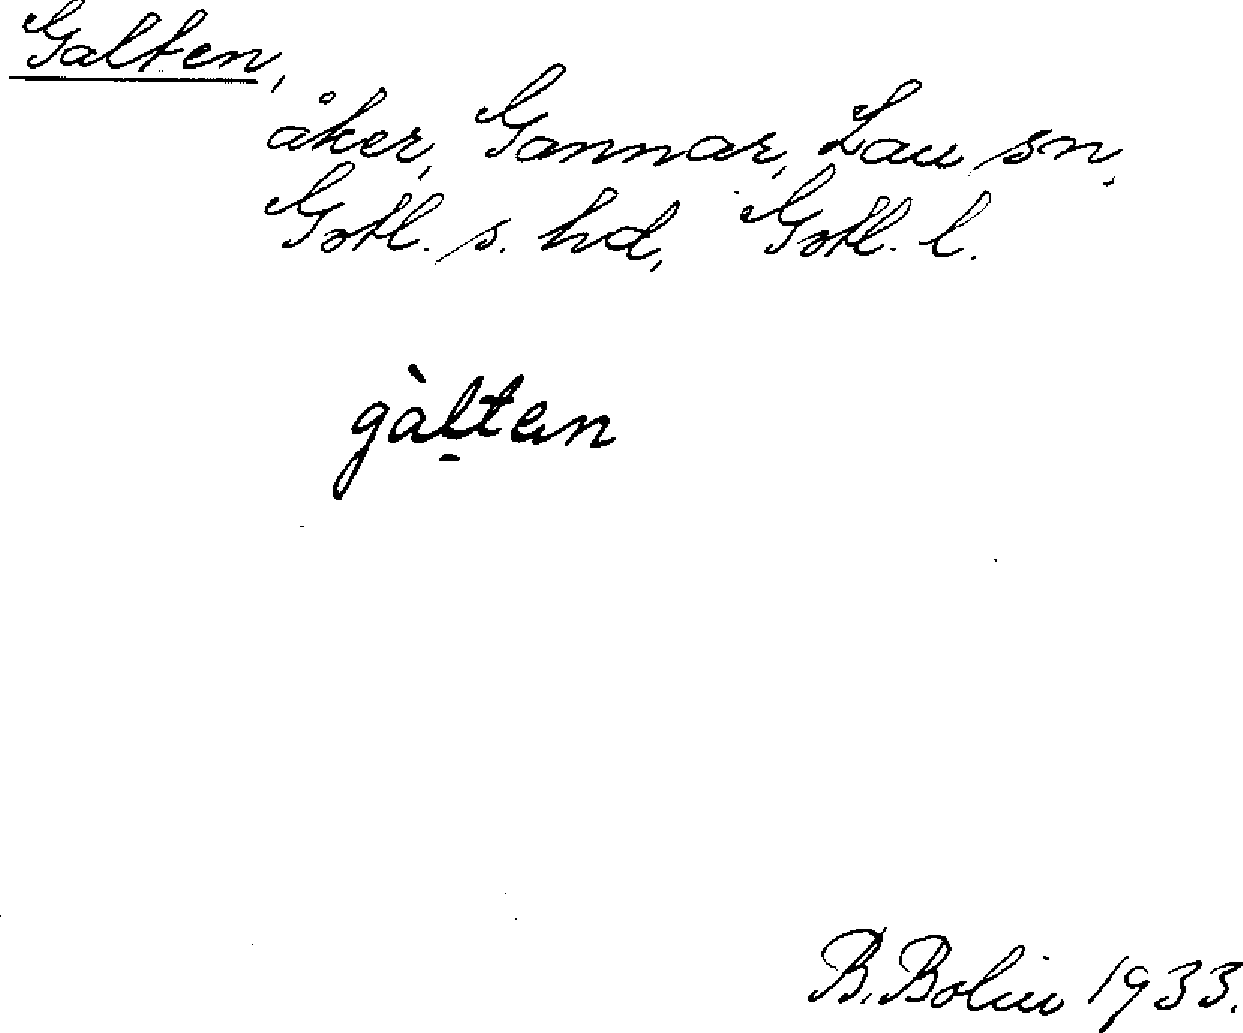 Galten,
åker, Gannar, Lau sn,
Gotl. s. hd, Gotl. l.
gàl̠ten
B. Bolin 1933.